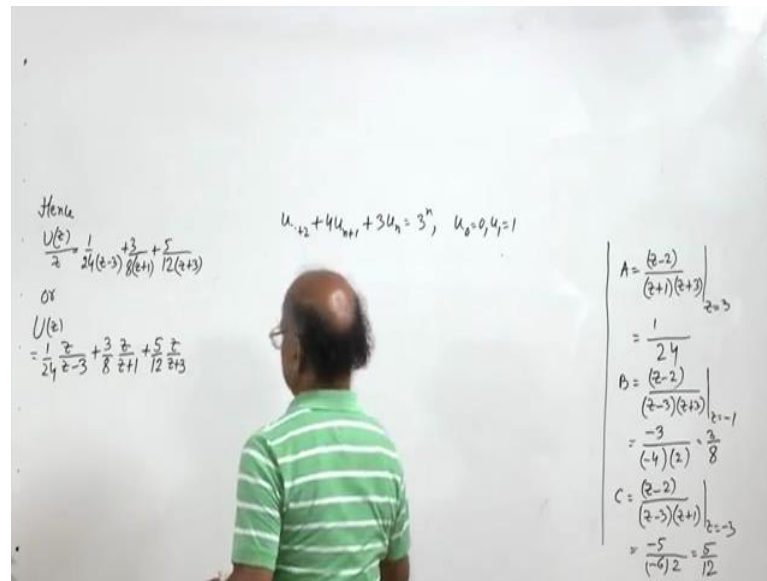 Hence
U(z)/z = 1/24(z-3) + 3/8(z+1) + 5/12(z+3)
or
U(z)
= 1/24 z/z-3 + 3/8 z/z+1 + 5/12 z/z+3
u..+2 + 4u_{n+1} + 3u_n = 3^n, u_0=0, u_1=1
A = (z-2)/(z+1)(z+3) |z=3
= 1/24
B = (z-2)/(z-3)(z+3) |z=-1
= -3/(-4)(2) = 3/8
C = (z-2)/(z-3)(z+1) |z=-3
= -5/(-6)2 = 5/12